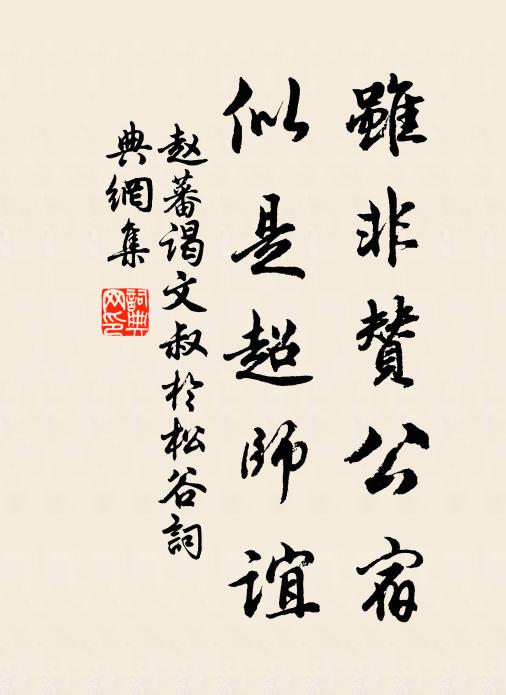 雖非贊公宿
似是超師誼
赵蕃谒文叔於松谷詞
典網集
詞典
网印